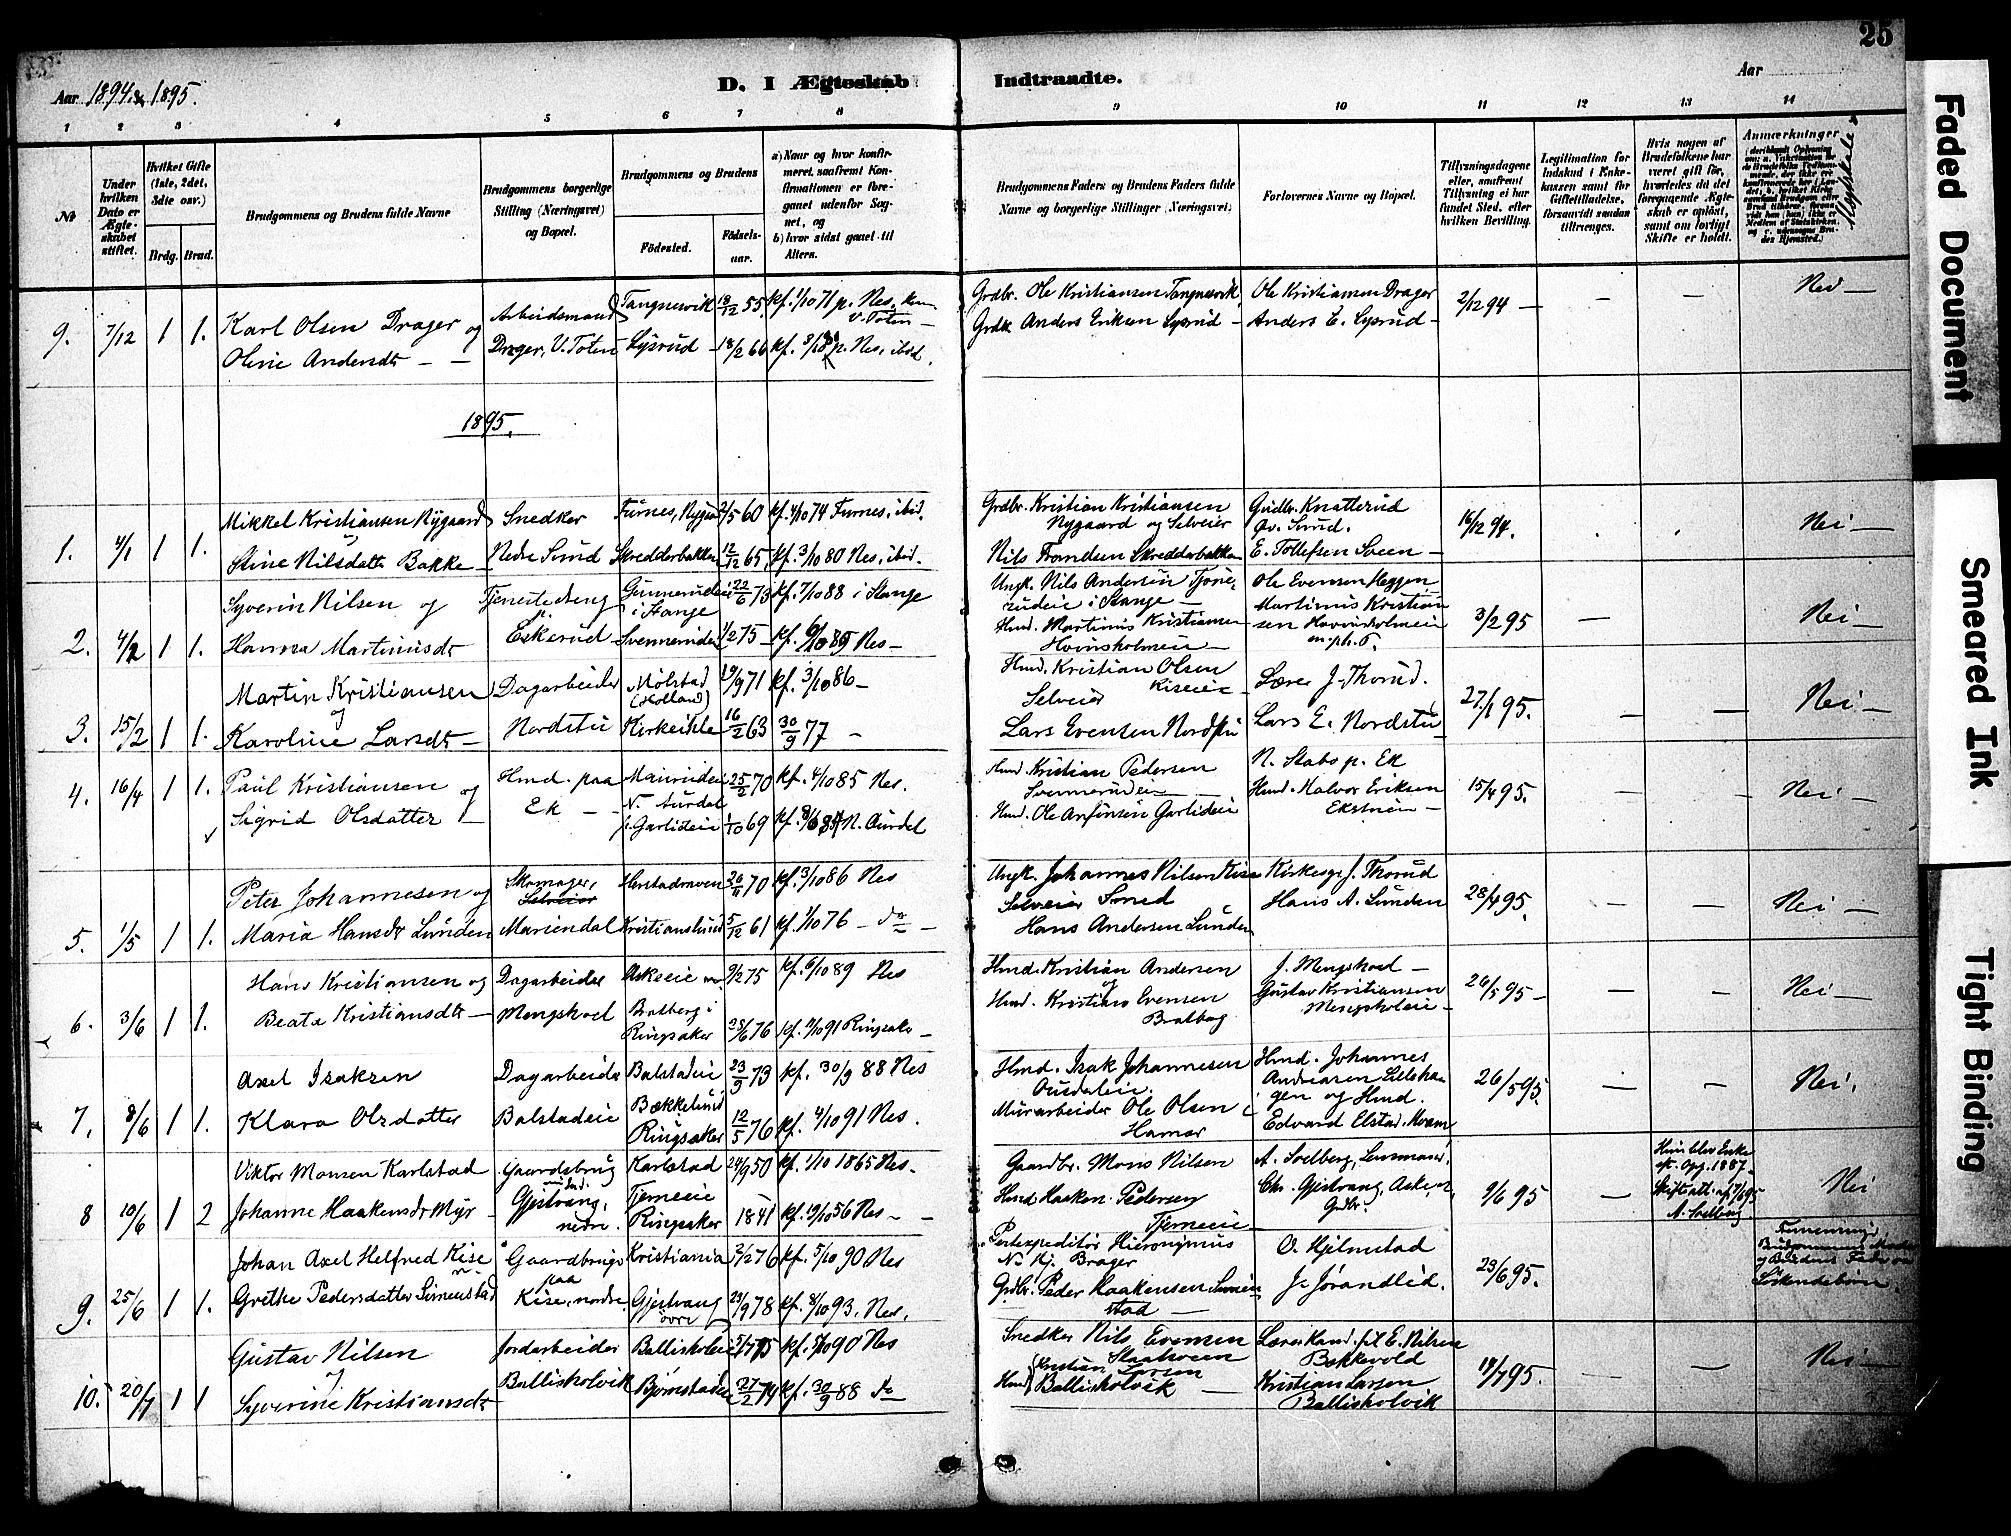 25
Aar 1894 & 1895.
D. I Ægteskab Indtraadte.
Aar
1 2 3 4 5 6 7 8 9 10 11 12 13 14
No
Under hvilken Dato er Ægteskabet stiftet.
Hvilket Gifte (1ste, 2det, 3die osv.)
Brdg. Brud.
Brudgommens og Brudens fulde Navne
Brudgommens borgerlige Stilling (Næringsvei) og Bopæl.
Brudgommens og Brudens
Födested.
Födselsaar.
a) Naar og hvor konfirmeret, saafremt Konfirmationen er foregaaet udenfor Sognet, og
b) hvor sidst gaaet til Alters.
Brudgommens Faders og Brudens Faders fulde Navne og borgerlige Stillinger (Næringsvei)
Forlovernes Navne og Bopæl.
Tillysningsdagene eller, saafremt Tillysning ei har fundet Sted, efter hvilken Bevilling.
Legitimation for Indskud i Enkekassen samt for Giftetilladelse, forsaavidt saadan tiltrænges.
Hvis nogen af Brudefolkene har været gift før, hvorledes da det foregaaende Ægteskab er opløst, samt om lovligt Skifte er holdt.
Anmærkninger
9. 7/12 1 1. Karl Olsen Drager og Arbeidsmand Tangnesvik 18/12 55. kf. 1/10 71 p. Nes, kom. V. Toten — Grdbr. Ole Kristiansen Tangnesvik Ole Kristiansen Drager 2/12 94 — — — Nei —
Oline Andersdt — — Drager, V. Toten Lysrud — 18/2 66 p. Nes, ibid. Anders Eriksen Lysrud — Anders E. Lysrud —
1895.
Mikkel Kristiansen Nygaard Snedker Furnes, 2/5 60 kf. 4/10 74 Furnes, ibid. Grdbr. Kristian Kristiansen Gudbr. Knatterud 16/12 94. Nei —
og Nygaard og Selveier Øv. Smud.
1. 4/1 1 1. Stine Nilsdatter Bakke — Nedre Smud Skredderbakken 12/12 65. kf. 3/10 80 Nes, ibid. Nils Skredderbakken E. Tollefsen Sveen —
Syverin Nilsen og Tjenestedreng Gunnerudeie 22/6 73 kf. 7/10 88 i Stange Ungk. Nils Andersen Ole Evensen Heggen
i Stange i Stange — Martinus Kristian 3/2 95 — Nei —
2. 4/2 1 1. Hanna Martinusdt Eskerud — Svennerudeie 1/2 75 — kf. Nes — Hmd. Martinus Kristiansen sen
Martin Kristiansen Dagarbeider Mølstad 19/9 71 kf. 3/10 86 — Hmd. Kristian Olsen Lærer J. Thorud. 27/1 95. — — Nei —
og Selveier Kiseeie
3. 15/2 1 1. Karoline Larsdt — Nordstu 16/2 63 30/9 77 — Lars Evensen Nordstu Lars E. Nordstu
4. 16/4 1 1. Paul Kristiansen og Hmd. paa 25/2 70 kf. 4/10 85 Nes. Hmd. Kristian Pedersen N. Stabo p. Ek 15/4 95. — — Nei —
Ek — N. Aurdal Svennerudeie Hmd. Halvor Eriksen
Sigrid Olsdatter — Garlideie 1/10 69 N. Aurdal Hmd. Ole Arfinsen Garlideie
Peter Johannesen og Skomager, 26/11 70 kf. 3/10 86 Nes Ungk. Johannes Nilsen Kise Kirkesgr. J. Thorud 28/4 95. — — Nei —
Selveier Selveier Smud Hans A. Lunden
5. 1/5 1 1. Maria Hansdt Lunden Mariendal Kristianslund 5/12 61 kf. 1/10 76 — do — Hans Andersen Lunden
Hans Kristiansen og Dagarbeider Askeeie 9/2 75 kf. 6/10 89 Nes Hmd. Kristian Andersen J. Mengshoel — 26/5 95 — — — Nei —
6. 3/6 1 1. Beata Kristiansdt — Mengshoel Bratberg i Ringsaker 25/6 76 Ringsaker — Hmd. Kristians Evensen Bratberg Gustav Kristiansen Mengsholeie —
Axel Isaksen Dagarbeider Balstadeie 23/9 73 kf. 30/9 88 Nes Hmd. Isak Johannesen Hmd. Johannes 26/5 95. — — Nei.
Bækkelund Ousdaleie. Andreasen Lilleha
7. 8/6 1 1. Klara Olsdatter Balstadeie Ringsaker 12/5 76 kf. 4/10 91 Nes. Murarbeider Ole Olsen i Hamar gen og Hmd. Edvard Elstad,
Viktor Monsen Karlstad Gaardsbrug Karlstad 24/9 50 kf. 1/10 1865 Nes — Gaardbr. Mons Nilsen A. Solberg, Lensmand. 9/6 95 — Hun blev Enke 1887. Nei
8 10/6 1 2 Johanne Haakensdt Myr — Gjestvang, nedre. Tjerneeie Ringsaker 1841 kf. 12/10 56 Nes — Hmd Haaken Pedersen Tjerneeie Chr. Gjestvang, Grdbr. A. Solberg
Johan Axel Helfred Kise Gaardbruger Kristiania 2/2 76 kf. 5/10 90 Nes Postexpeditör Hieronymus O. Hjelmstad 23/6 95.
N. Hj. Brager
9. 25/6 1 1. Grethe Pedersdatter Simenstad paa Kise, nordre Gjestvang øvre 23/9 78 kf. 8/10 93. Nes. Grdbr. Peder Haakensen Simenstad — J. Jørandlid. og Brudens Fader er Søkendebørn.
Gustav Nilsen Jordarbeider Balliskoleie kf. 5/10 90 Nes Snedker Nils Evensen E. Nilsen 14/7 95. — Nei —
og Bakkevold
10. 20/7 1 1 Syverine Kristiansdt Balliskolvik Bjørnstadeie 27/2 74 kf. 30/9 88 do Hmd. Kristian Larsen Balliskolvik — Kristian Larsen Balliskolvik
Faded Document
Smeared Ink
Tight Binding